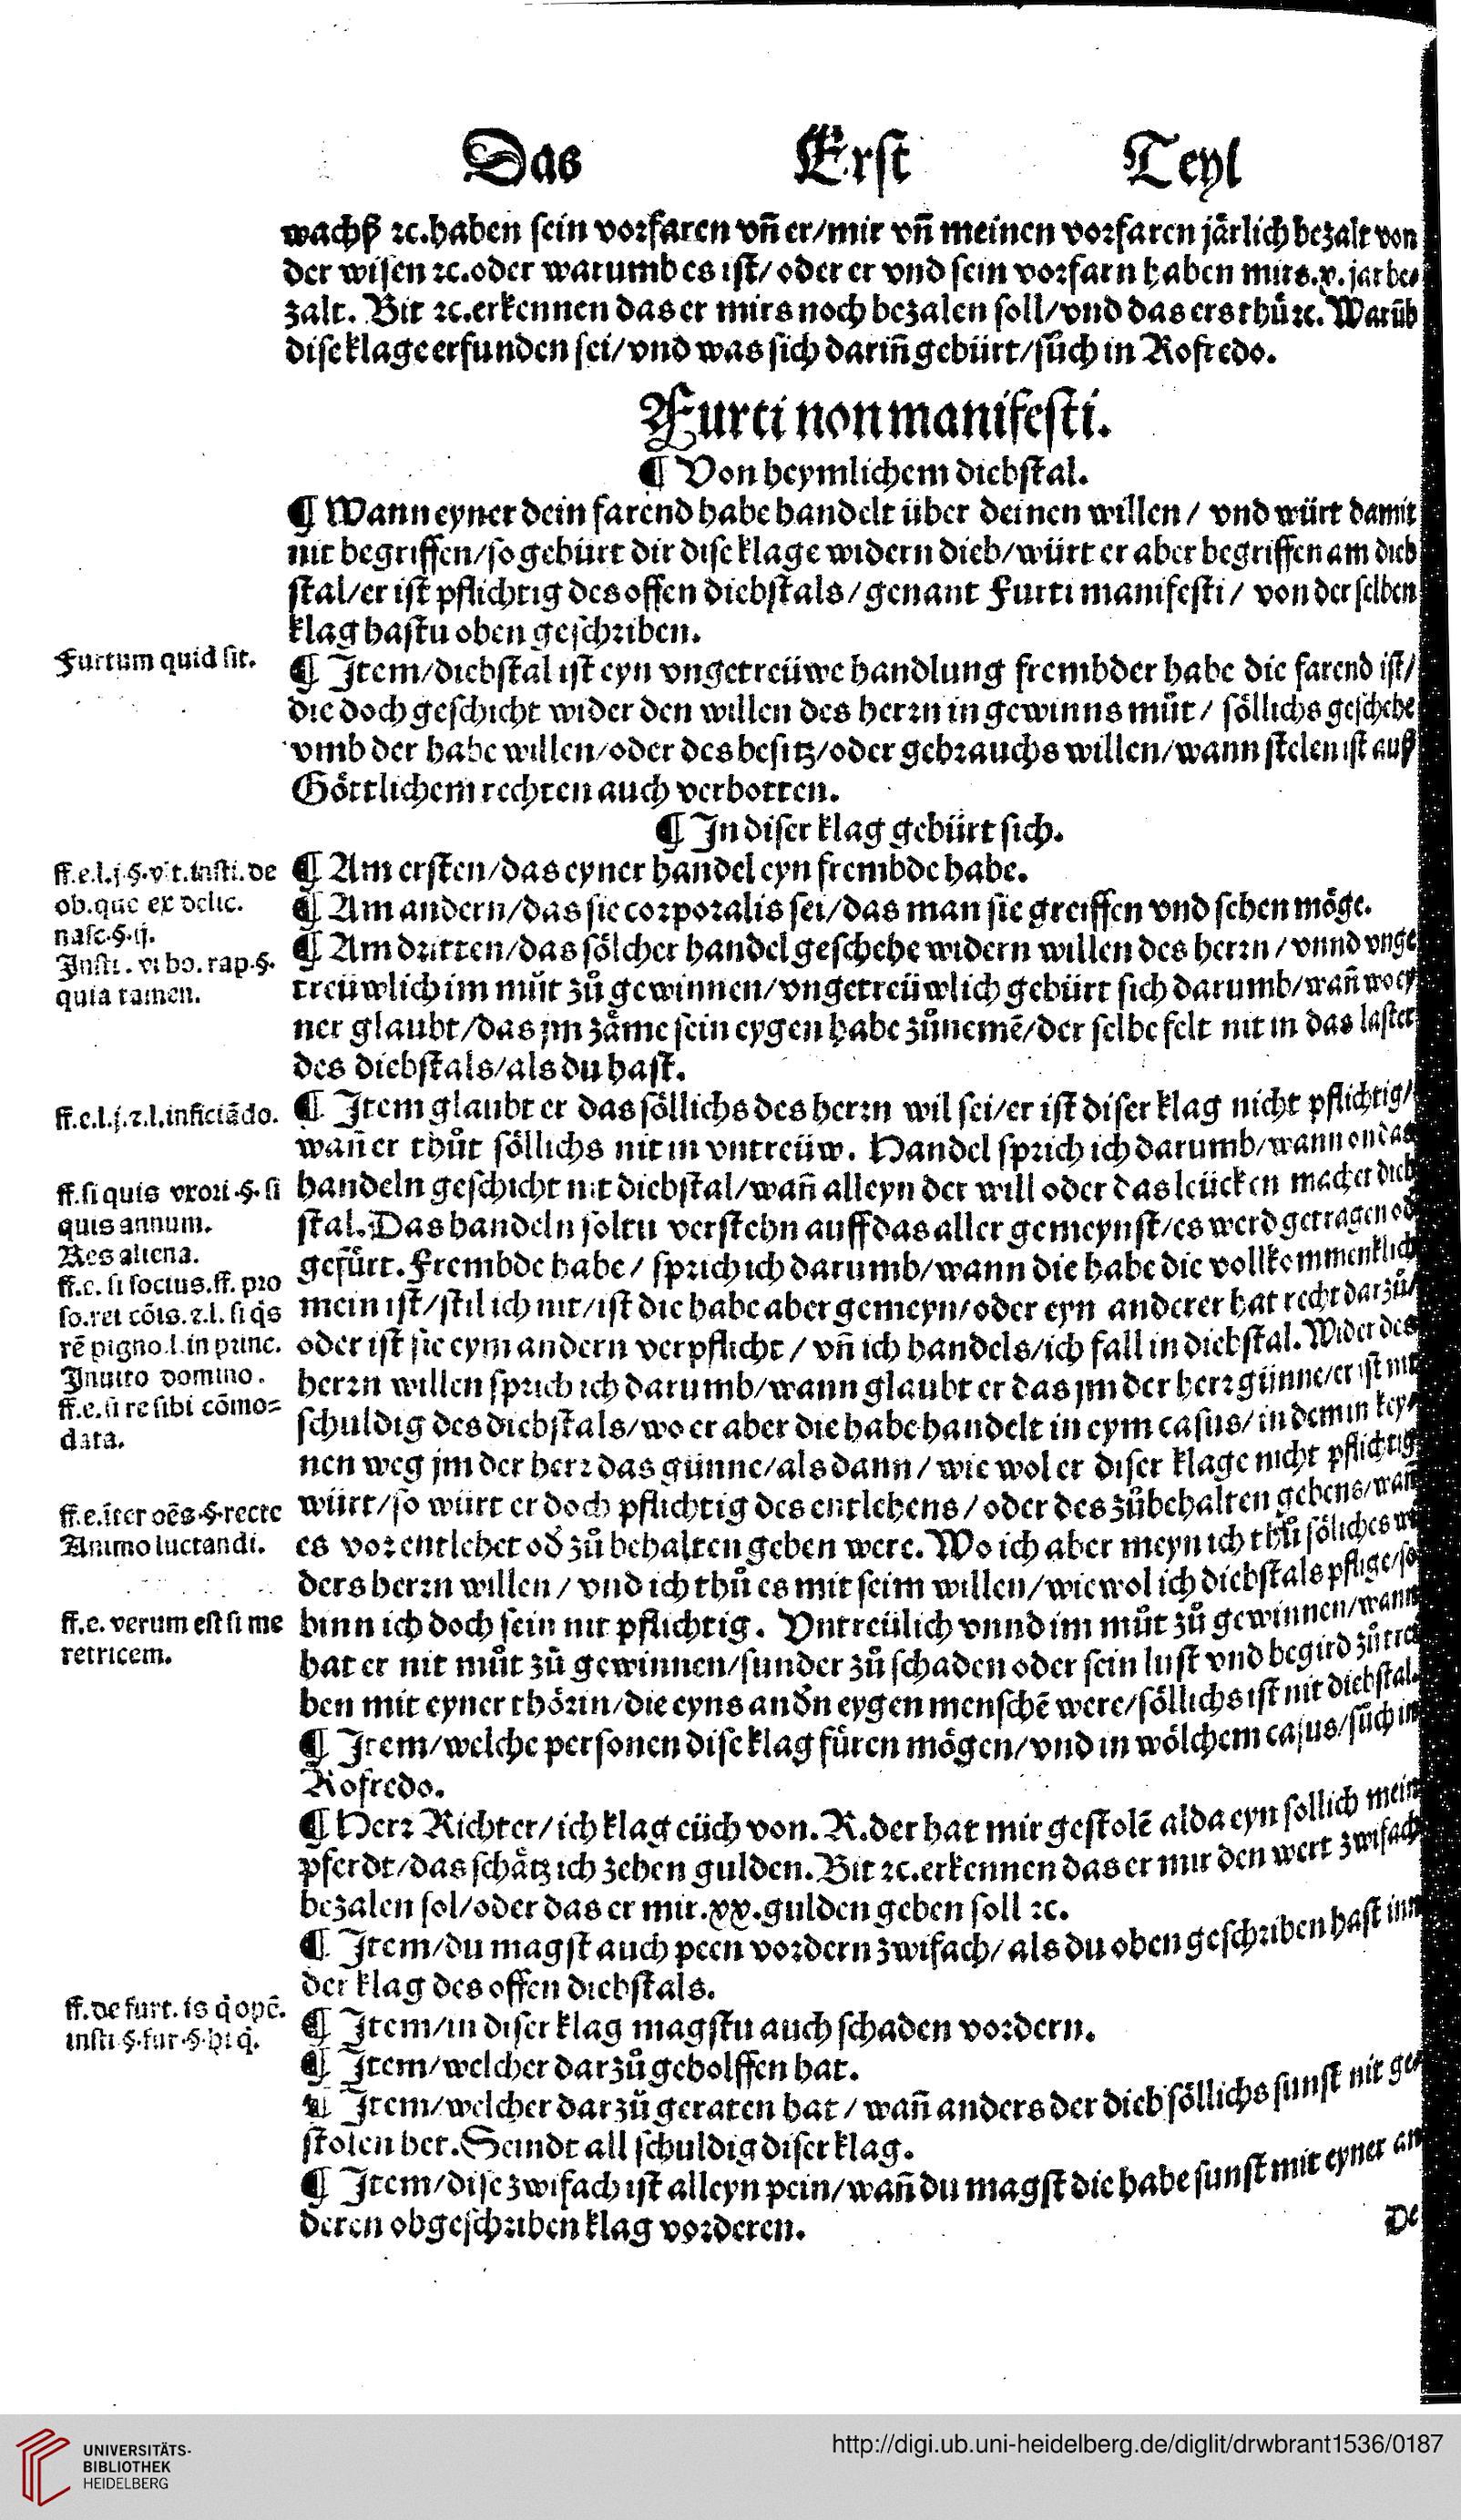 Das Erst Teyl
wachß ꝛc. haben sein vorfaren vñ er/mir vñ meinen vorfaren jaͤrlich bezalt von
der wisen ꝛc. oder warumb es ist/ oder er vnd sein vorfarn haben mirs. x. jar be-
zalt. Bit ꝛc. erkennen das er mirs noch bezalen soll/vnd das ers thuͤ ꝛc. Warũb
dise klage erfunden sei/vnd was sich dariñ gebürt/suͦch in Rofredo.
Furti non manifesti.
¶ Von heymlichem diebstal.
¶ Wann eyner dein farend habe handelt über deinen willen / vnd würt damit
nit begriffen/so gebürt dir dise klage widern dieb/würt er aber begriffen am dieb
stal/er ist pflichtig des offen diebstals/genant Furti manifesti/ von der selben
klag hastu oben geschriben.
Furtum quid sit.
¶ Item/diebstal ist eyn vngetreüwe handlung frembder habe die farend ist/
die doch geschicht wider den willen des herrn in gewinns muͦt/ soͤllichs geschehe
vmb der habe willen/oder des besitz/oder gebrauchs willen/wann stelen ist auß
Goͤttlichem rechten auch verbotten.
¶ In diser klag gebürt sich.
ff. e. l. j. §. vlt. insti. de
ob. que ex delic.
nasc. §. ij.
Insti. vi bo. rap. §.
quia tamen.
¶ Am ersten/das eyner handel eyn frembde habe.
¶ Am andern/das sie corporalis sei/das man sie greiffen vnd sehen moͤge.
¶ Am dritten/das soͤlcher handel geschehe widern willen des herrn / vnnd vnge
treüwlich im muͦt zuͦ gewinnen/vngetreüwlich gebürt sich darumb/wañ wo ey
ner glaubt/das jm zaͤme sein eygen habe zuͦnemẽ/der selbe felt nit in das laster
des diebstals/als du hast.
ff. e. l. j. ⁊. l. inficiãdo.
¶ Item glaubt er das soͤllichs des herrn wil sei/er ist diser klag nicht pflichtig/
wañ er thuͦt soͤllichs nit in vntreüw. Handel sprich ich darumb/wann on das
ff. si quis vxori. §. si
quis annum.
Res aliena.
ff. e. si socius. ff. pro
so. rei cõis. ⁊. l. si q̃s
rẽ pigno. l. in princ.
Inuito domino.
ff. e. si re sibi cõmo-
data.
handeln geschicht nit diebstal/wañ alleyn der will oder das leücken macht dieb
stal. Das handeln soltu verstehn auff das aller gemeynst/es werd getragen od
gefuͤrt. Frembde habe/ sprich ich darumb/wann die habe die vollkommenklich
mein ist/stil ich nit/ist die habe aber gemeyn/oder eyn anderer hat recht darzuͦ/
oder ist sie eym andern verpflicht / vñ ich handels/ich fall in diebstal. Wider des
herrn willen sprich ich darumb/wann glaubt er das jm der herr günne/er ist nit
schuldig des diebstals/wo er aber die habe handelt in eym casus/ in dem in key-
nen weg jm der herr das günne/als dann/ wie wol er diser klage nicht pflichtig
ff. e. ĩter oẽs. §. recte
Animo lucrandi.
würt/so würt er doch pflichtig des entlehens/ oder des zuͦbehalten gebens/wañ
es vor entlehet oď zuͦ behalten geben were. Wo ich aber meyn ich thuͦ soͤliches wi
ders herrn willen/ vnd ich thuͦ es mit seim willen/wiewol ich diebstals pflige/so
ff. e. verum est si me
retricem.
binn ich doch sein nit pflichtig. Vntreülich vnnd im muͦt zuͦ gewinnen/wann
hat er nit muͦt zuͦ gewinnen/sunder zuͦ schaden oder sein lust vnd begird zuͦtrei
ben mit eyner thoͤrin/die eyns anďn eygen menschẽ were/soͤllichs ist nit diebstal.
¶ Item/welche personen dise klag fuͤren moͤgen/vnd in woͤlchem casus/suͦch in
Rofredo.
¶ Herr Richter/ich klag eüch von. R. der hat mir gestolẽ alda eyn sollich mein
pferdt/das schaͤtz ich zehen gulden. Bit ꝛc. erkennen das er mir den wert zwifach
bezalen sol/oder das er mir. xx. gulden geben soll ꝛc.
¶ Item/du magst auch peen vordern zwifach/ als du oben geschriben hast inn
der klag des offen diebstals.
ff. de furt. is q̃ opẽ.
insti. §. fur. §. hi q̃.
¶ Item/in diser klag magstu auch schaden vordern.
¶ Item/welcher darzuͦ geholffen hat.
¶ Item/welcher darzuͦ geraten hat / wañ anders der dieb soͤllichs sunst nit ge-
stolen het. Seindt all schuldig diser klag.
¶ Item/dise zwifach ist alleyn pein/wañ du magst die habe sunst mit eyner an
deren obgeschriben klag vorderen.
De
UNIVERSITÄTS-
BIBLIOTHEK
HEIDELBERG
http://digi.ub.uni-heidelberg.de/diglit/drwbrant1536/0187